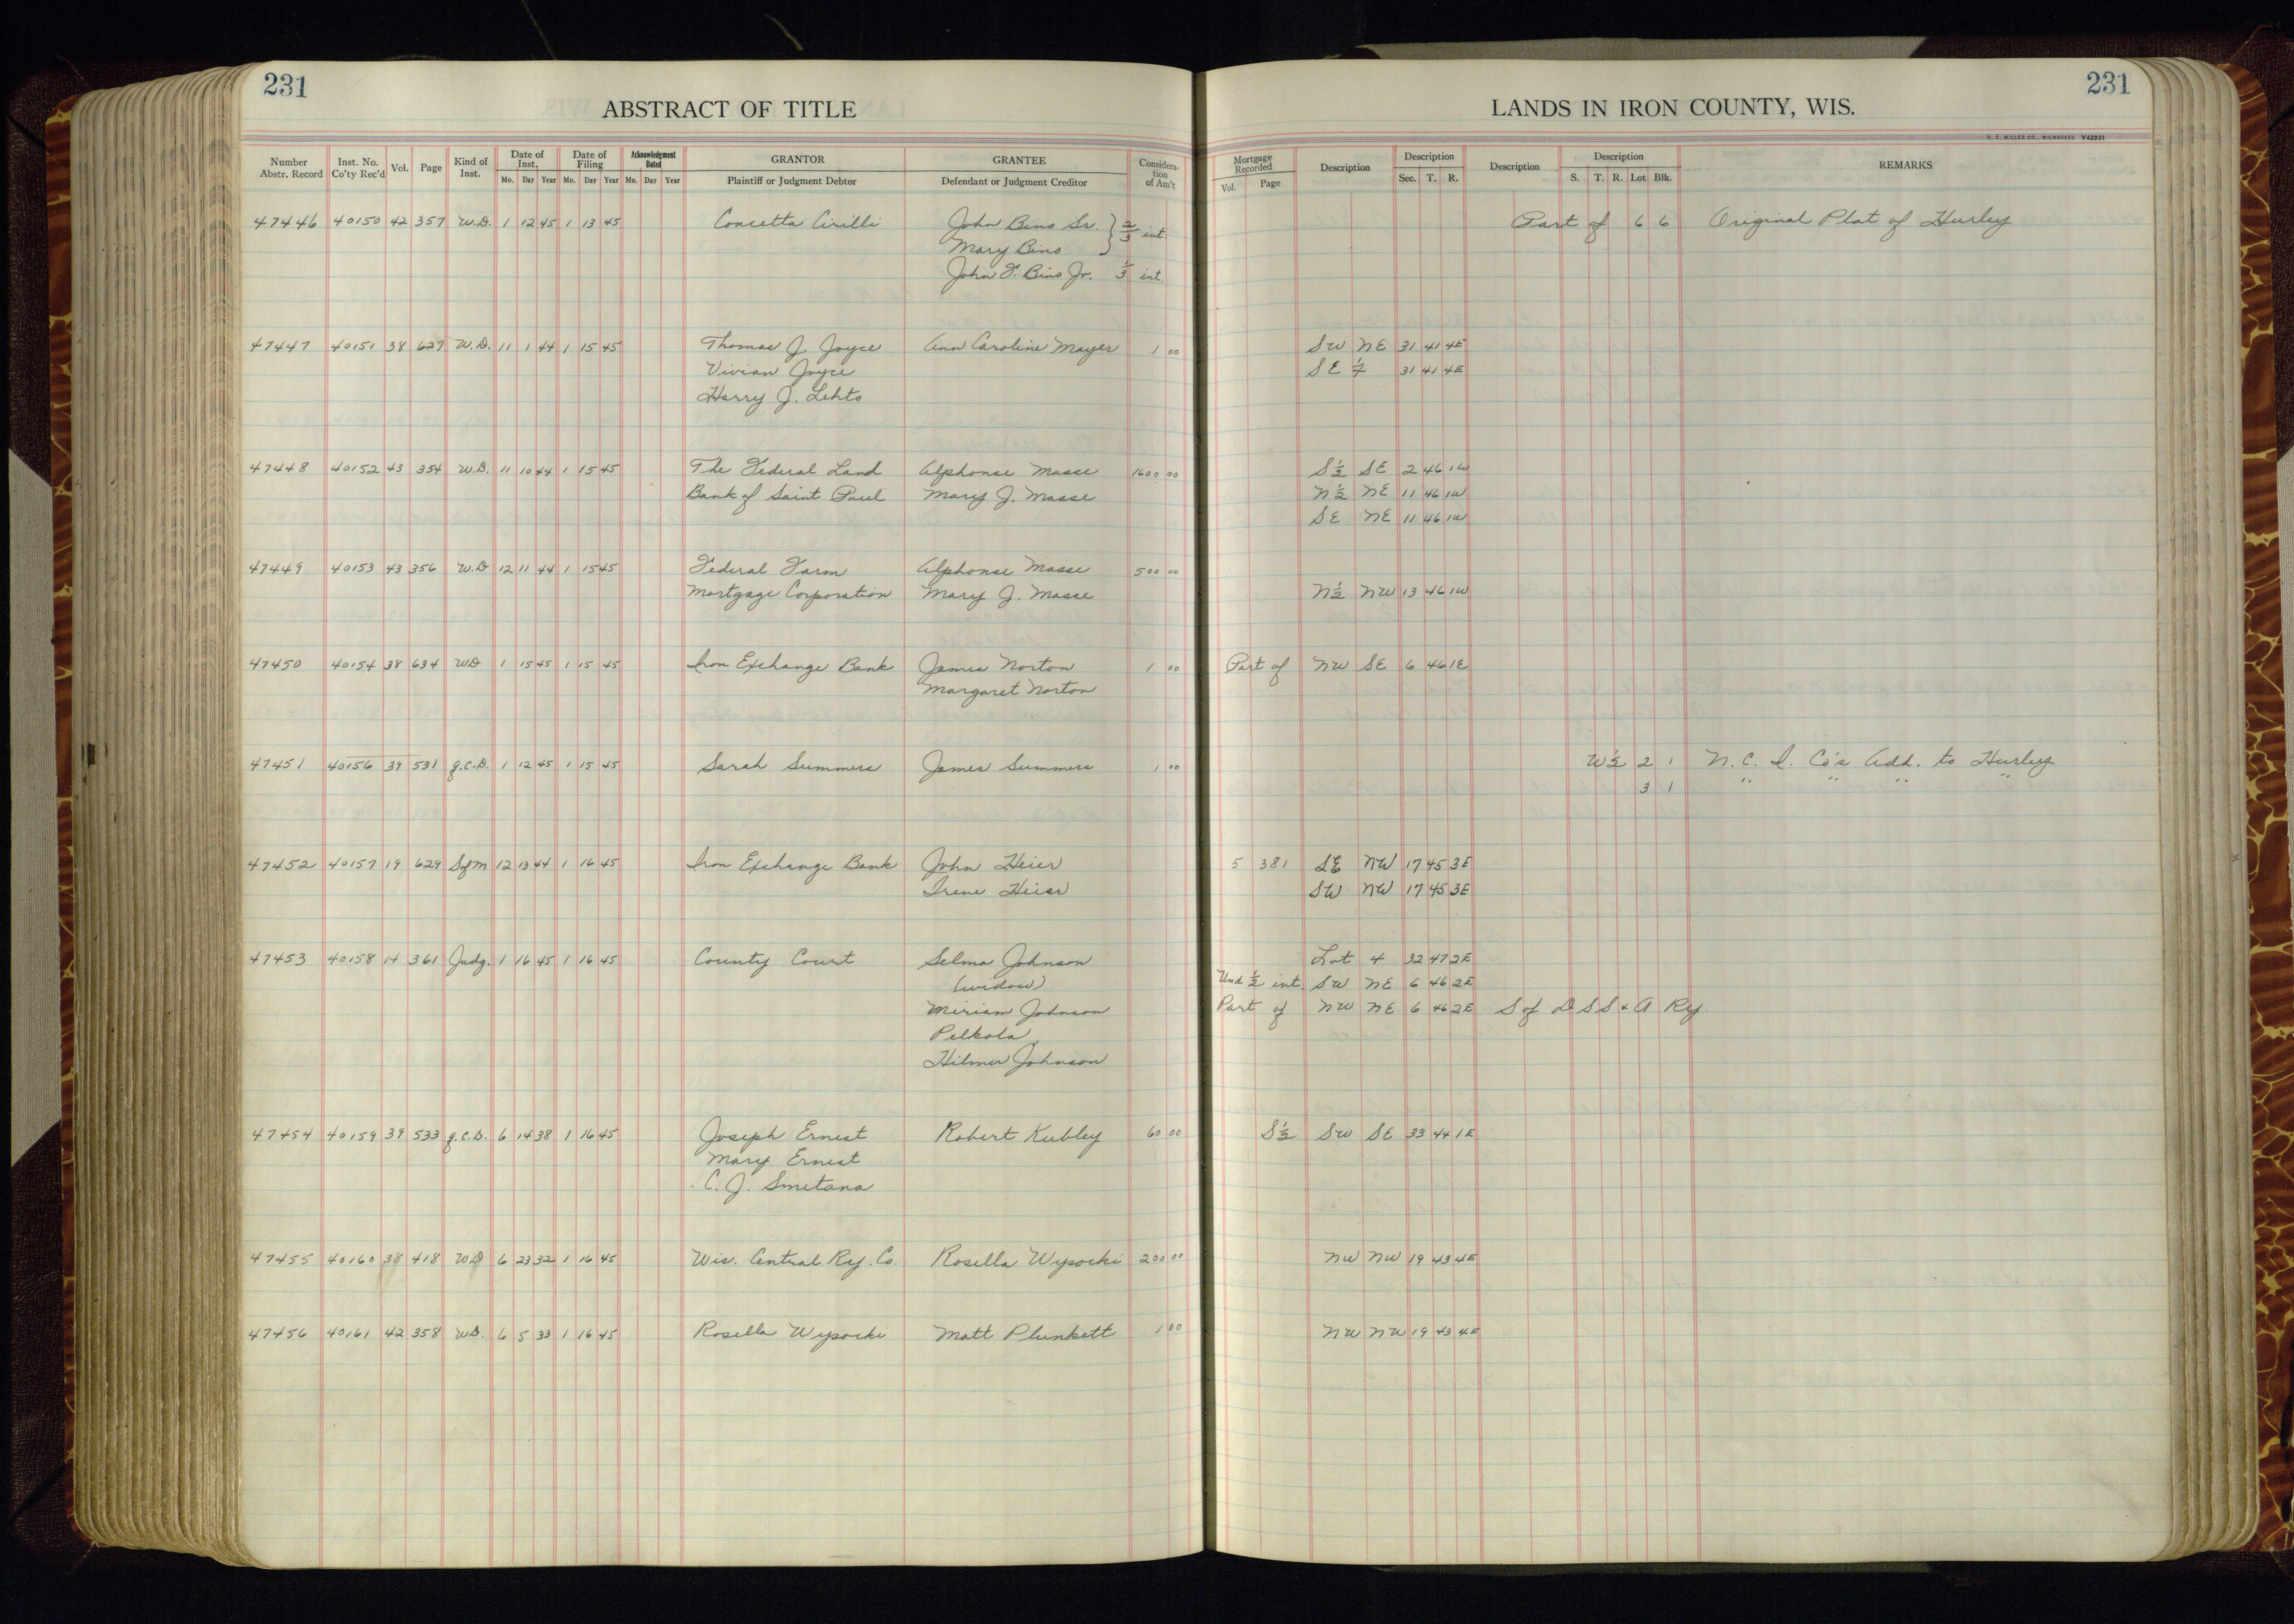 231
231
ABSTRACT OF TITLE
LANDS IN IRON COUNTY, WIS.
Y42931
Number Abstr. Record | Inst. No. Co'ty Rec'd | Vol. | Page | Kind of Inst. | Date of Inst. Mo. Day Year | Date of Filing Mo. Day Year | Acknowledgment Dated Mo. Day Year | GRANTOR Plaintiff or Judgment Debtor | GRANTEE Defendant or Judgment Creditor | Consideration of Am't | Mortgage Recorded Vol. Page | Description | Description Sec. T. R. | Description | Description S. T. R. Lot Blk. | REMARKS
47446 40150 42 357 W.D. 1 12 45 1 13 45 Concetta Cirilli John Bino Sr. } 2/3 int. Part of 6 6 Original Plat of Hurley
Mary Bino
John F. Bino Jr. 1/3 int.
47447 40151 38 627 W.D. 11 1 44 1 15 45 Thomas J. Joyce Ann Caroline Mayer 1 00 SW NE 31 41 4E
Vivian Joyce SE 1/4 31 41 4E
Harry J. Lehto
47448 40152 43 354 W.D. 11 10 44 1 15 45 The Federal Land Alphonse Masse 1600 00 S 1/2 SE 2 46 1W
Bank of Saint Paul Mary J. Masse N 1/2 NE 11 46 1W
SE NE 11 46 1W
47449 40153 43 356 W.D 12 11 44 1 15 45 Federal Farm Alphonse Masse 500 00
Mortgage Corporation Mary J. Masse N 1/2 NW 13 46 1W
47450 40154 38 634 WD 1 15 45 1 15 45 Iron Exchange Bank James Norton 1 00 Part of NW SE 6 46 1E
Margaret Norton
47451 40156 39 531 q.C.D. 1 12 45 1 15 45 Sarah Summers James Summers 1 00 W 1/2 2 1 N. C. I. Co's Add. to Hurley
3 1 " " " "
47452 40157 19 629 Sofm 12 13 44 1 16 45 Iron Exchange Bank John Heier 5 381 SE NW 17 45 3E
Irene Heier SW NW 17 45 3E
47453 40158 14 361 Judg. 1 16 45 1 16 45 County Court Selma Johnson Lot 4 32 47 2E
(widow) Und 1/2 int. SW NE 6 46 2E
Miriam Johnson Part of NW NE 6 46 2E S of D S S & A Ry.
Pelkola
Hilmer Johnson
47454 40159 39 533 q.C.D. 6 14 38 1 16 45 Joseph Ernest Robert Kubley 60 00 S 1/2 SW SE 33 44 1E
Mary Ernest
C. J. Smetana
47455 40160 38 418 WD 6 23 32 1 16 45 Wis. Central Ry. Co. Rosella Wysocki 200 00 NW NW 19 43 4E
47456 40161 42 358 W.D. 6 5 33 1 16 45 Rosella Wysocki Matt Plunkett 1 00 NW NW 19 43 4E